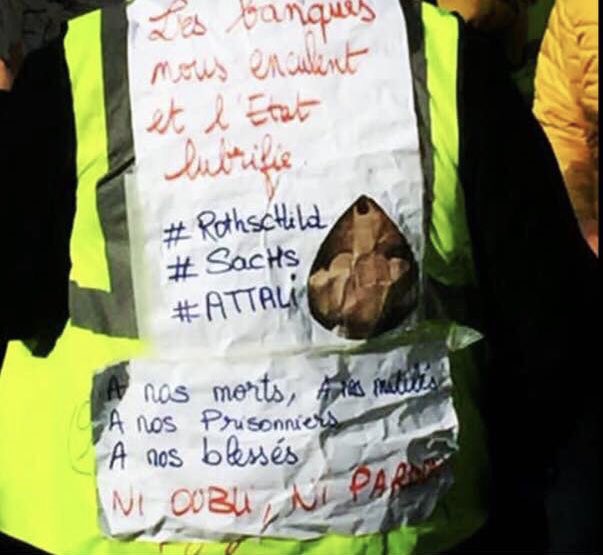 Les banques
nous enculent
et l'Etat
lubrifie.
# RothscHild
# SacHs
# ATTALi
A nos morts, A nos mutilés
A nos Prisonniers
A nos blessés
Ni OUBLi, Ni PARDON